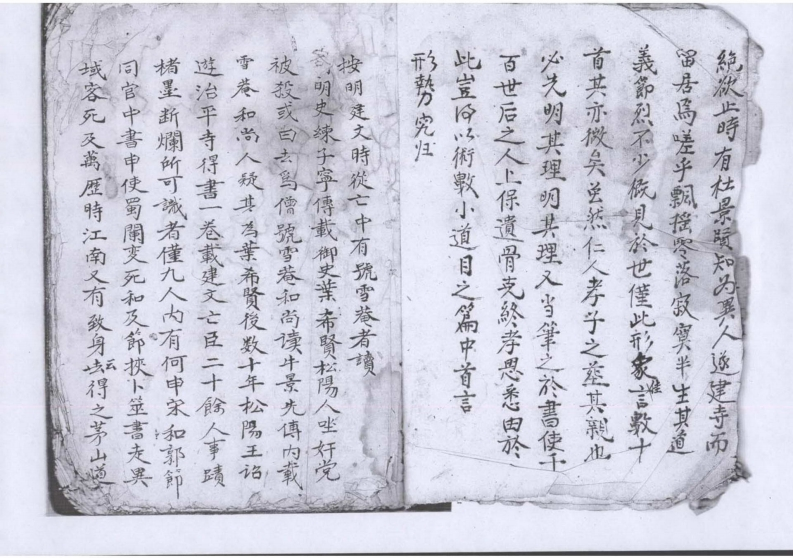 絶欲止時有杜景賢知为異人遂建寺而
留居焉嗟乎飄摇零落寂寞半生其道
義節烈不少概見於世僅此形象言數十
首其亦微矣虽然仁人孝子之塟其親也
必先明其理明其理又当筆之於書使千
百世后之人上保遺骨克終孝思悉由於
此豈得以術數小道目之篇中首言
形勢究归
按明建文時從亡中有號雪菴者讀
明史練子寧傳載御史葉希賢松陽人坐奸党
被殺或曰去為僧號雪菴和尚讀牛景先傳内載
雪菴和尚人疑其為葉希賢後数十年松陽王詔
遊治平寺得書一卷載建文亡臣二十餘人事蹟
楮墨断爛所可識者僅九人内有何申宋和郭節
同官中書申使蜀聞变死和及節挾卜筮書走異
域客死及萬歷時江南又有致身录云得之茅山道